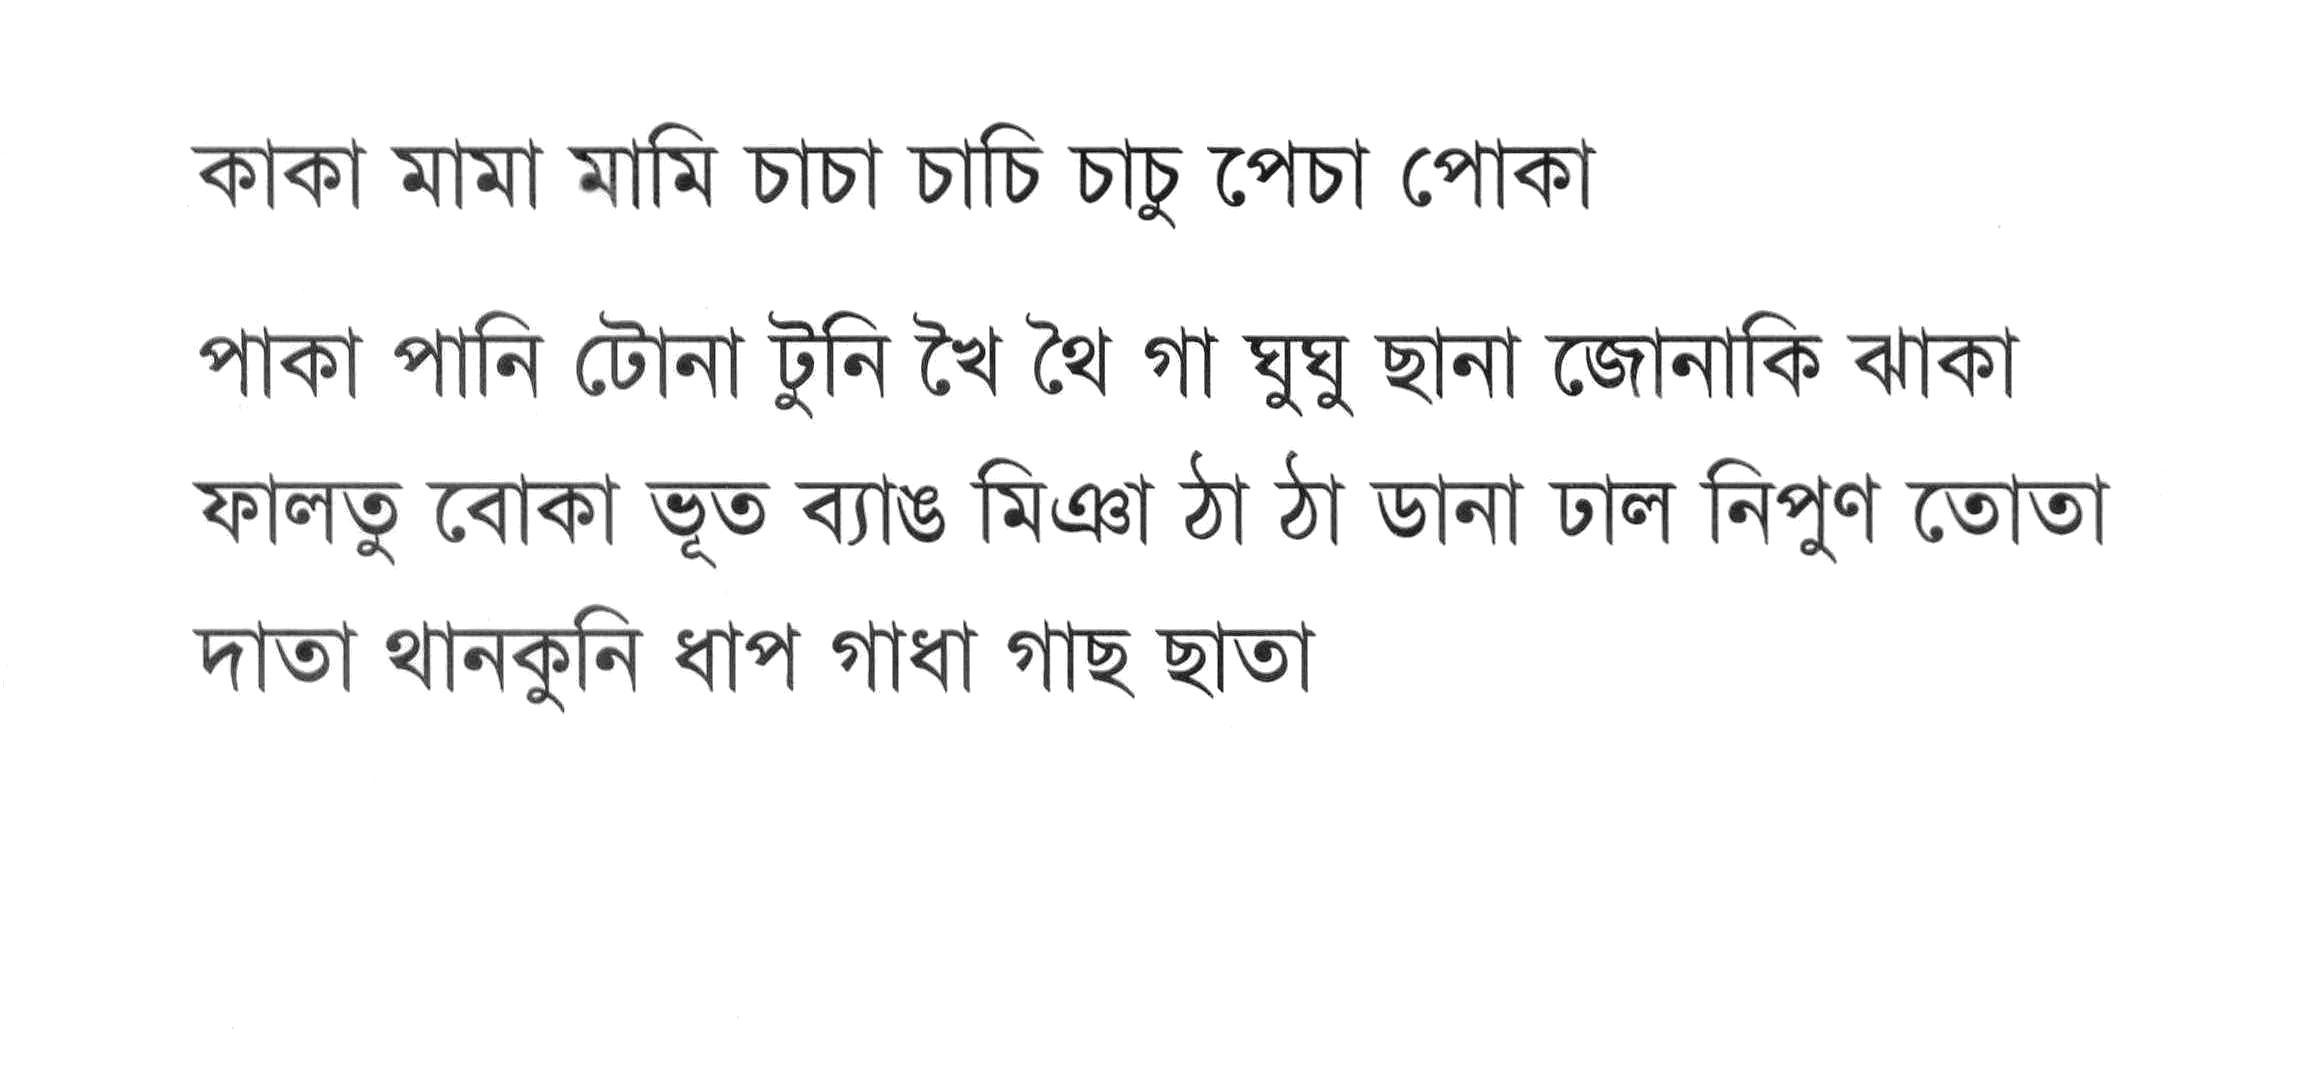 কাকা মামা মামি চাচা চাচি চাচু পেচা পোকা
পাকা পানি টোনা টুনি খৈ থৈ গা ঘুঘু ছানা জোনাকি ঝাকা
ফালতু বোকা ভূত ব্যাঙ মিঞা ঠা ঠা ডানা ঢাল নিপুণ তোতা
দাতা থানকুনি ধাপ গাধা গাছ ছাতা